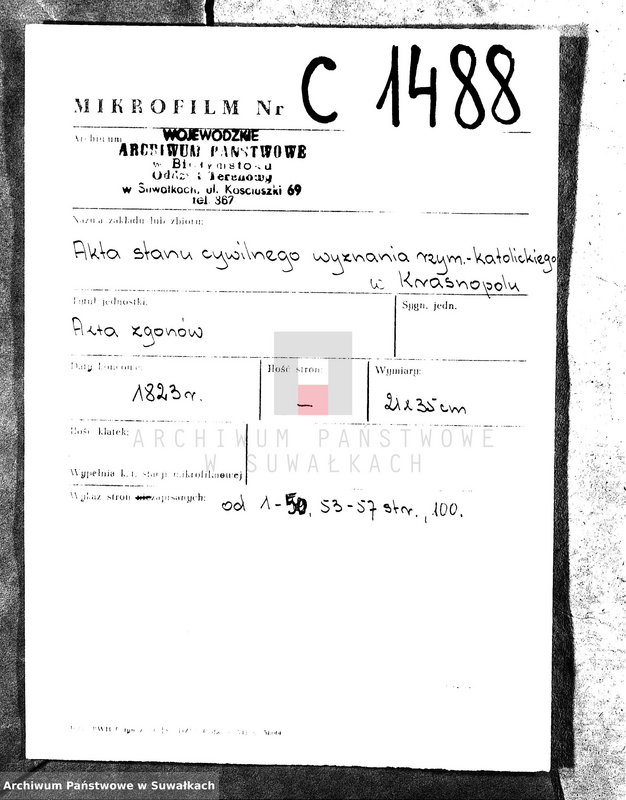 MIKROFILM Nr C 1488
Archiwum
WOJEWÓDZKIE
ARCHIWUM PAŃSTWOWE
w Białymstoku
Oddział Terenowy
w Suwałkach, ul. Kościuszki 69
tel. 367
Nazwa zakładu lub zbioru:
Akta stanu cywilnego wyznania rzym.-katolickiego
w Krasnopolu
Tytuł jednostki:
Sygn. jedn.
Akta zgonów
Daty końcowe:
Ilość stron:
Wymiary:
1823 r.
—
21x35cm
Ilość klatek:
ARCHIWUM PAŃSTWOWE
W SUWAŁKACH
Wypełnia k.t. stacji mikrofilmowej
Wykaz stron niezapisanych: od 1-50, 53-57 str., 100.
Archiwum Państwowe w Suwałkach